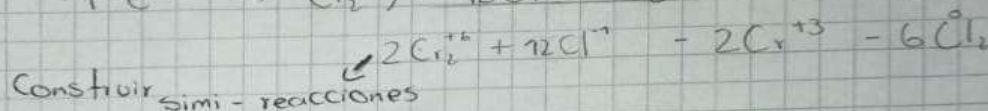 2Cr₂⁺⁶ + 12Cl⁻¹ - 2Cr⁺³ - 6Cl⁰₂
Construir simi - reacciones